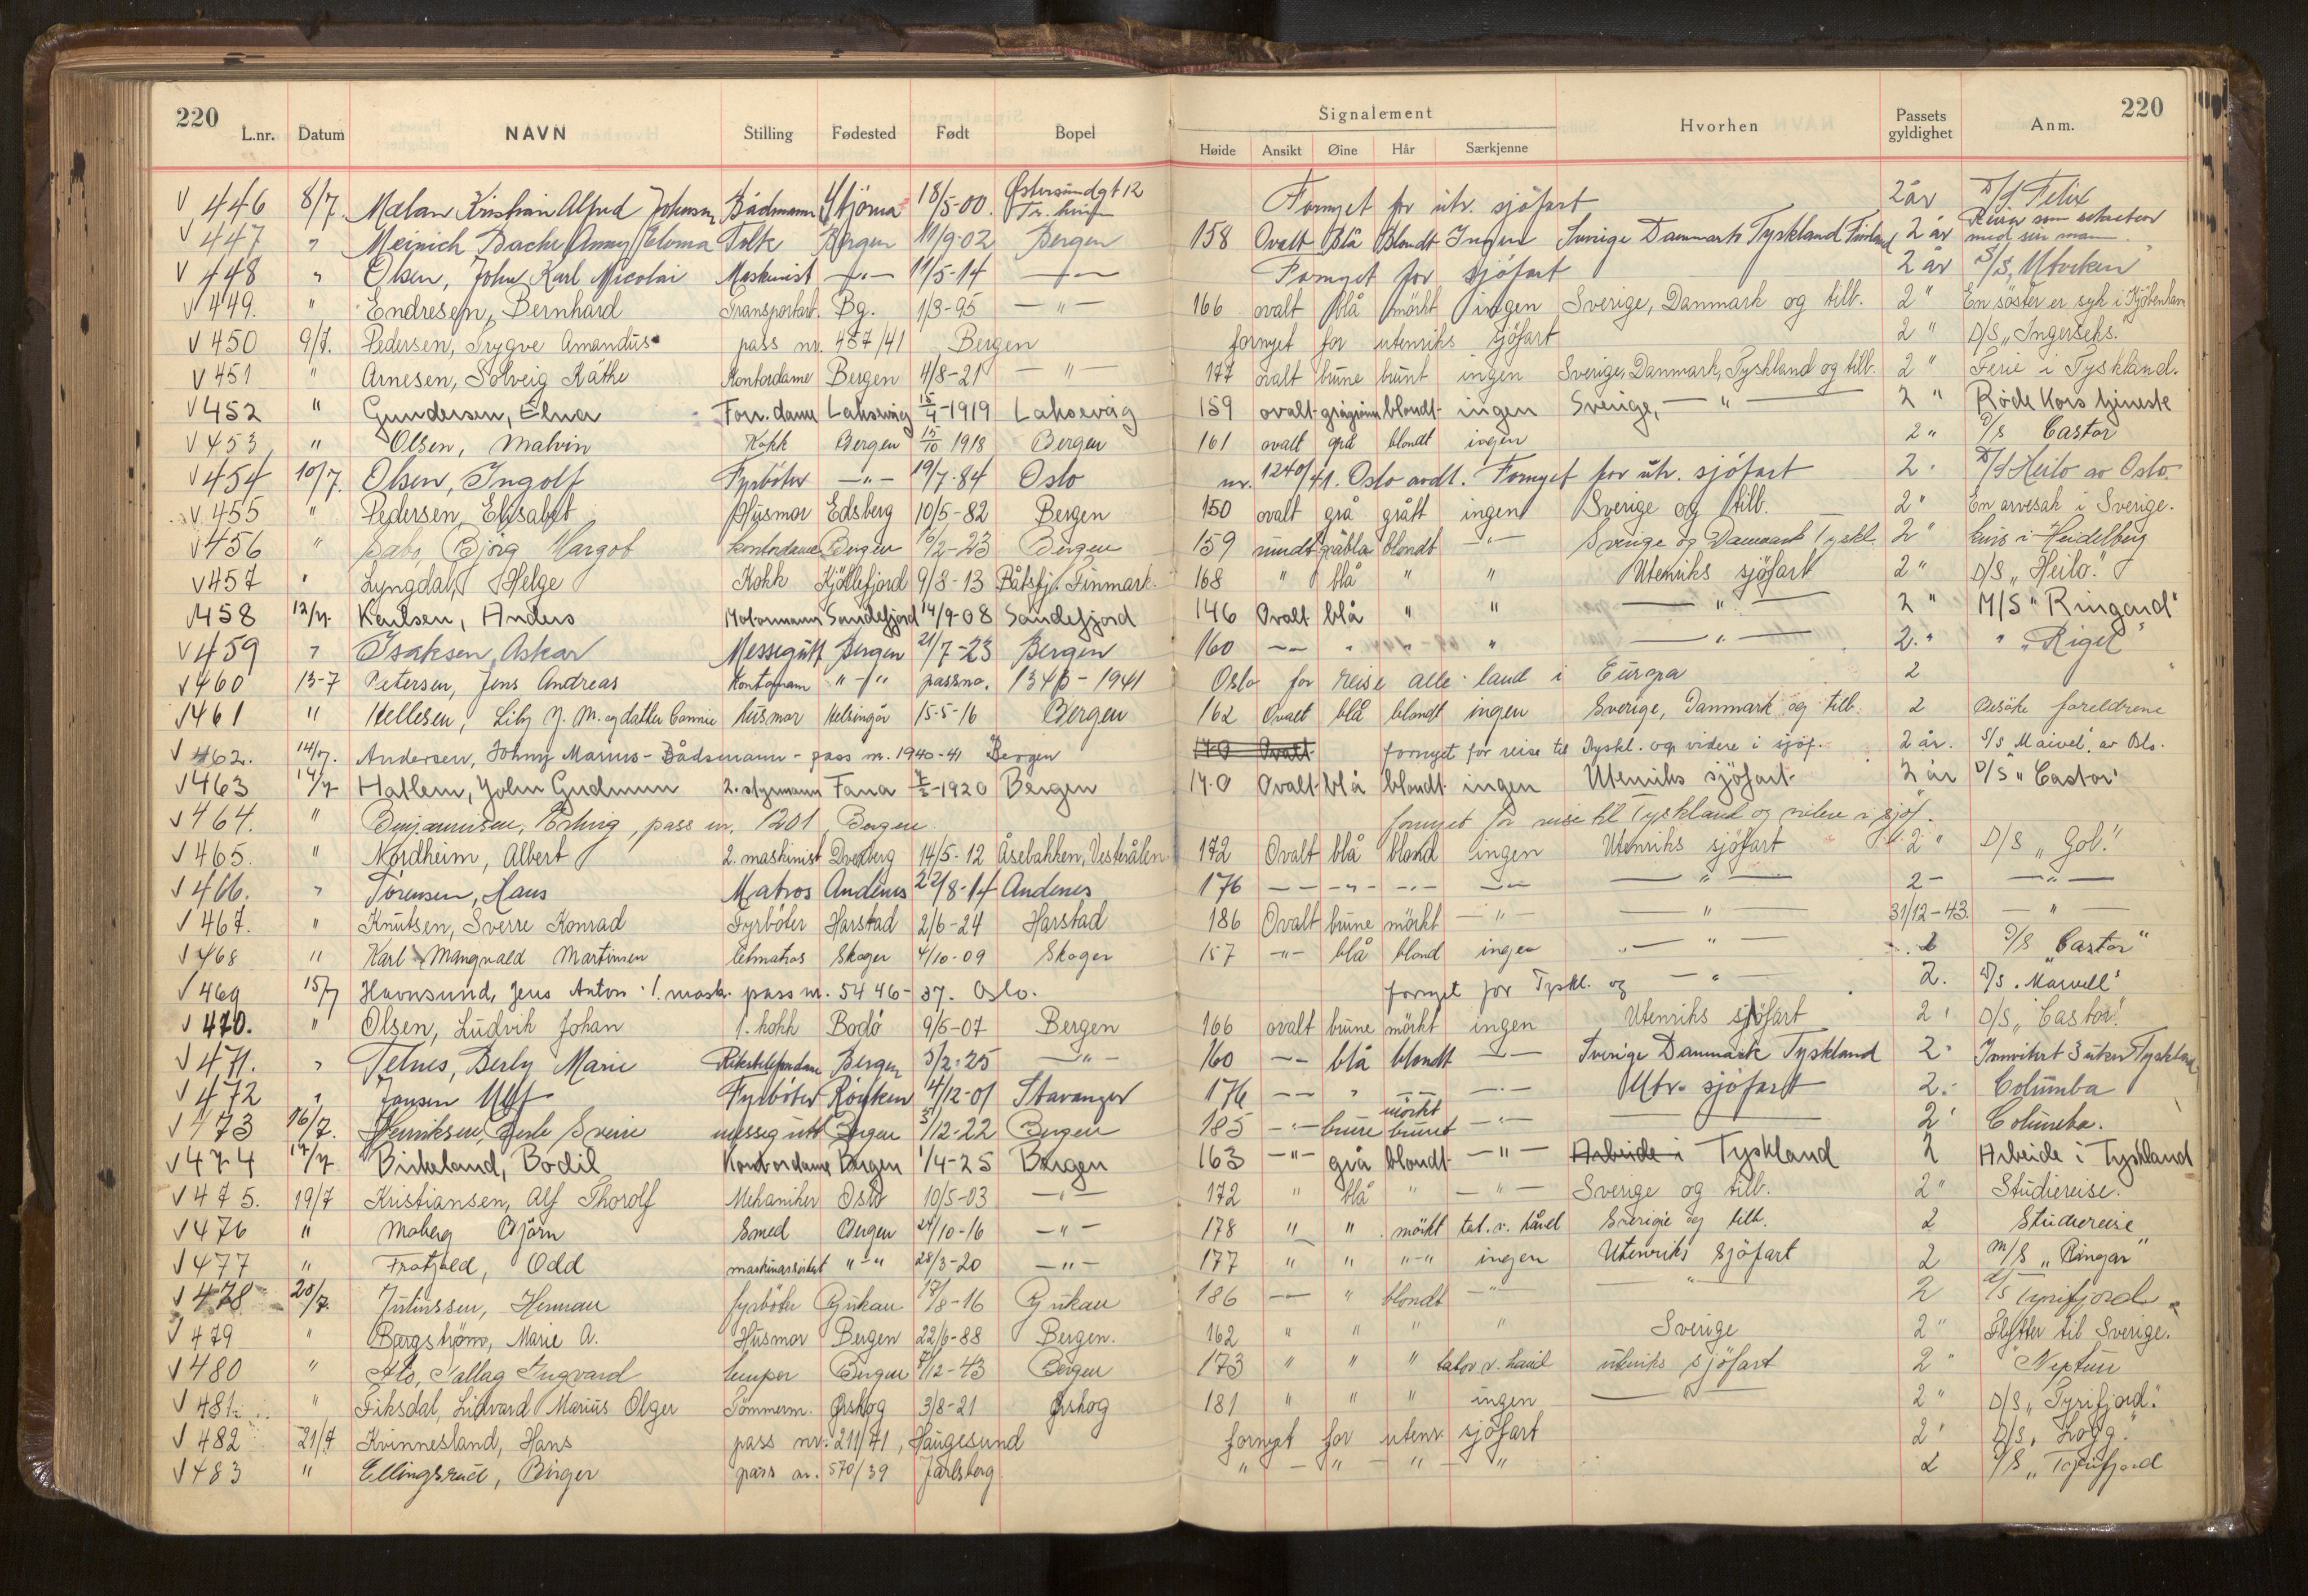 220
L.nr. Datum NAVN Stilling Fødested Født Bopel
Signalement Hvorhen Passets gyldighet Anm. 220
Høide Ansikt Øine Hår Særkjenne
V 446 8/7. Malan Kristian Alfred Johnsen Bådmann 18/5-00. Østersundgt 12 Fornyet for utr. sjöfart 2 år D/S Felix
V 447 " Meinich Bache Anny Bergen 11/9-02 Bergen 158 Ovalt Blå Blondt Ingen Sverige Danmark Tyskland Finland 2 år Reiser som med sin man
V 448 " Olsen, John Karl Nicolai Maskinist -"- 11/5-14 -"- Fornyet for sjöfart 2 år S/S
V 449. " Endresen, Bernhard Transportarb. Bg. 1/3-95 -"- 166 ovalt blå mörkt ingen Sverige, Danmark og tilb. 2 " En söster er syk i Kjöbenhavn
V 450 9/7. Pedersen, Trygve Amandus pass nr. 457/41 Bergen fornyet for utenriks sjöfart 2 " D/S „Ingerseks."
V 451 " Arnesen, Solveig Käthe Kontordame Bergen 4/8-21 -"- 177 ovalt brune brunt ingen Sverige, Danmark, Tyskland og tilb. 2 " Ferie i Tyskland.
V 452 " Gundersen, Elna Forr. dame Laksevåg 15/4-1919 Laksevåg 159 ovalt grågrönn blondt ingen Sverige, -"- 2 " Röde Kors tjeneste
V 453 " Olsen, Malvin Kokk Bergen 15/10 1918 Bergen 161 ovalt grå blondt ingen 2 " D/S Castor
V 454 10/7. Olsen, Ingolf Fyrböter -"- 19/7-84 Oslo nr. 1240/41. Oslo avdl. Fornyet for utr. sjöfart 2 " D/S Heilo av Oslo.
V 455 " Pedersen, Elisabet Husmor Edsberg 10/5-82 Bergen 150 ovalt grå grått ingen Sverige og tilb. 2 " En arvesak i Sverige.
V 456 " Björg Margot kontordame Bergen /2-23 Bergen 159 rundt gråblå blondt -"- Sverige og Danmark Tyskl. 2 " kurs i Heidelberg
V 457 " Lyngdal, Helge Kokk Kjöllefjord 9/8-13 Båtsfj. Finmark. 168 " blå " " Utenriks sjöfart 2 " D/S „Heilo."
V 458 12/7. Karlsen, Anders Motormann Sandefjord 14/9-08 Sandefjord 146 Ovalt blå " " -"- 2 " M/S "Ringand"
V 459 " Isaksen, Askar Messegutt Bergen 21/7-23 Bergen 160 -- " " " -"- 2. " " „Rigel"
V 460 13-7 Petersen, Jens Andreas Kontorm "-" passno. 1346 - 1941 Oslo for reise alle land i Europa 2
V 461 " Hellesen, Lily M. og datter Connie husmor Helsingör 15-5-16 Bergen 162 Ovalt blå blondt ingen Sverige, Danmark og tilb. 2 Besöke foreldrene
V 462. 14/7. Andersen, Johny Marius - Bådsmann - pass nr. 1940-41 Bergen 170 Ovalt fornyet for reise til Tyskl. og videre i sjöf. 2 år. S/S Maivel, av Oslo.
V 463 14/7 Hatlem, John Gudmun 2. styrmann Fana -1920 Bergen 170 Ovalt blå blondt ingen Utenriks sjöfart 2 år D/S "Castor"
V 464. " Benjaminsen, Erling, pass nr. 1201, Bergen fornyet for reise til Tyskland og videre i sjöf.
V 465. " Nordheim, Albert 2. maskinist Dverberg 14/5-12 Åsebakken, Vesterålen 172 Ovalt blå bland ingen Utenriks sjöfart 2 " D/S „Gol."
V 466. " Törensen, Hans Matros Andenes 22/8-14 Andenes 176 -- -"- -"- -"- -"- 2 - -"-
V 467. " Knutsen, Sverre Konrad Fyrböter Harstad 2/6-24 Harstad 186 Ovalt brune mörkt -"- -"- 31/12-43. -"-
V 468 " Karl Mangvald Martinsen letmatros Skoger 4/10-09 Skoger 157 -"- blå bland ingen -"- 2 D/S "Castor"
V 469 15/7 Havnsund, Jens Anton 1. mask. pass nr. 5446-37. Oslo. fornyet for Tyskl. og -"- 2. D/S "Marvell"
V 470. " Olsen, Ludvik Johan 1. kokk Bodö 9/6-07 Bergen 166 ovalt brune mörkt ingen Utenriks sjöfart 2 " D/S „Castor".
V 471. " Telnes, Berly Marie Rikstelefondame Bergen 3/2-25 -"- 160 -- blå blondt -- Sverige Danmark Tyskland 2 " Innvitert 3 uker Tyskland
V 472 " Jansen Ulf Fyrböter Röyken 4/12-01 Stavanger 176 -- " -- -"- Utr. sjöfart 2. " Columba
V 473 16/7. Henriksen, Sverre messegutt Bergen /12-22 Bergen 185 -"- brune mörkt brunet -"- 2 " Columba.
V 474 17/7 Birkeland, Bodil Kontordame Bergen 1/4-25 Bergen 163 -"- grå blondt -"- Arbeide i Tyskland 2 Arbeide i Tyskland
V 475. 19/7 Kristiansen, Alf Thorolf Mekaniker Oslo 10/5-03 -"- 172 " blå " -"- Sverige og tilb. 2 " Studiereise.
V 476 " Moberg Björn Smed Bergen 24/10-16 -"- 178 " " mörkt tat. v. hånd Sverige og tilb. 2 Studiereise
V 477 " Fratjeld, Odd maskinarbeider "-" 28/3-20 -"- 177 " " "-" ingen Utenriks sjöfart 2 M/S „Ringar"
V 478 20/7. Juliussen, Herman fyrböter Rjukan /8-16 Rjukan 186 -- " blondt -"- -"- 2 D/S Tyrifjord
V 479 " Bergstrøm, Marie A. Husmor Bergen 22/6-88 Bergen. 162 " " " " Sverige 2 " Flytter til Sverige.
V 480 " Tallag Ingvard lemper Bergen /12-43 Bergen 173 " " " tatov. v. hånd utenriks sjöfart 2 " "Neptun
V 481. " Fiksdal, Lidvard Marius Olger Tömmerm. Ørskog 3/8-21 Ørskog 181 " " " ingen -"- 2 " D/S „Tyrifjord."
V 482 21/7 Kvinnesland, Hans pass nr. 211/41, Haugesund fornyet for utenr. sjöfart 2 " D/S „Logg."
V 483 " Ellingsrud, Birger pass nr. 570/39 Jarlsberg. " - " - " - " 2 D/S „Tyrifjord